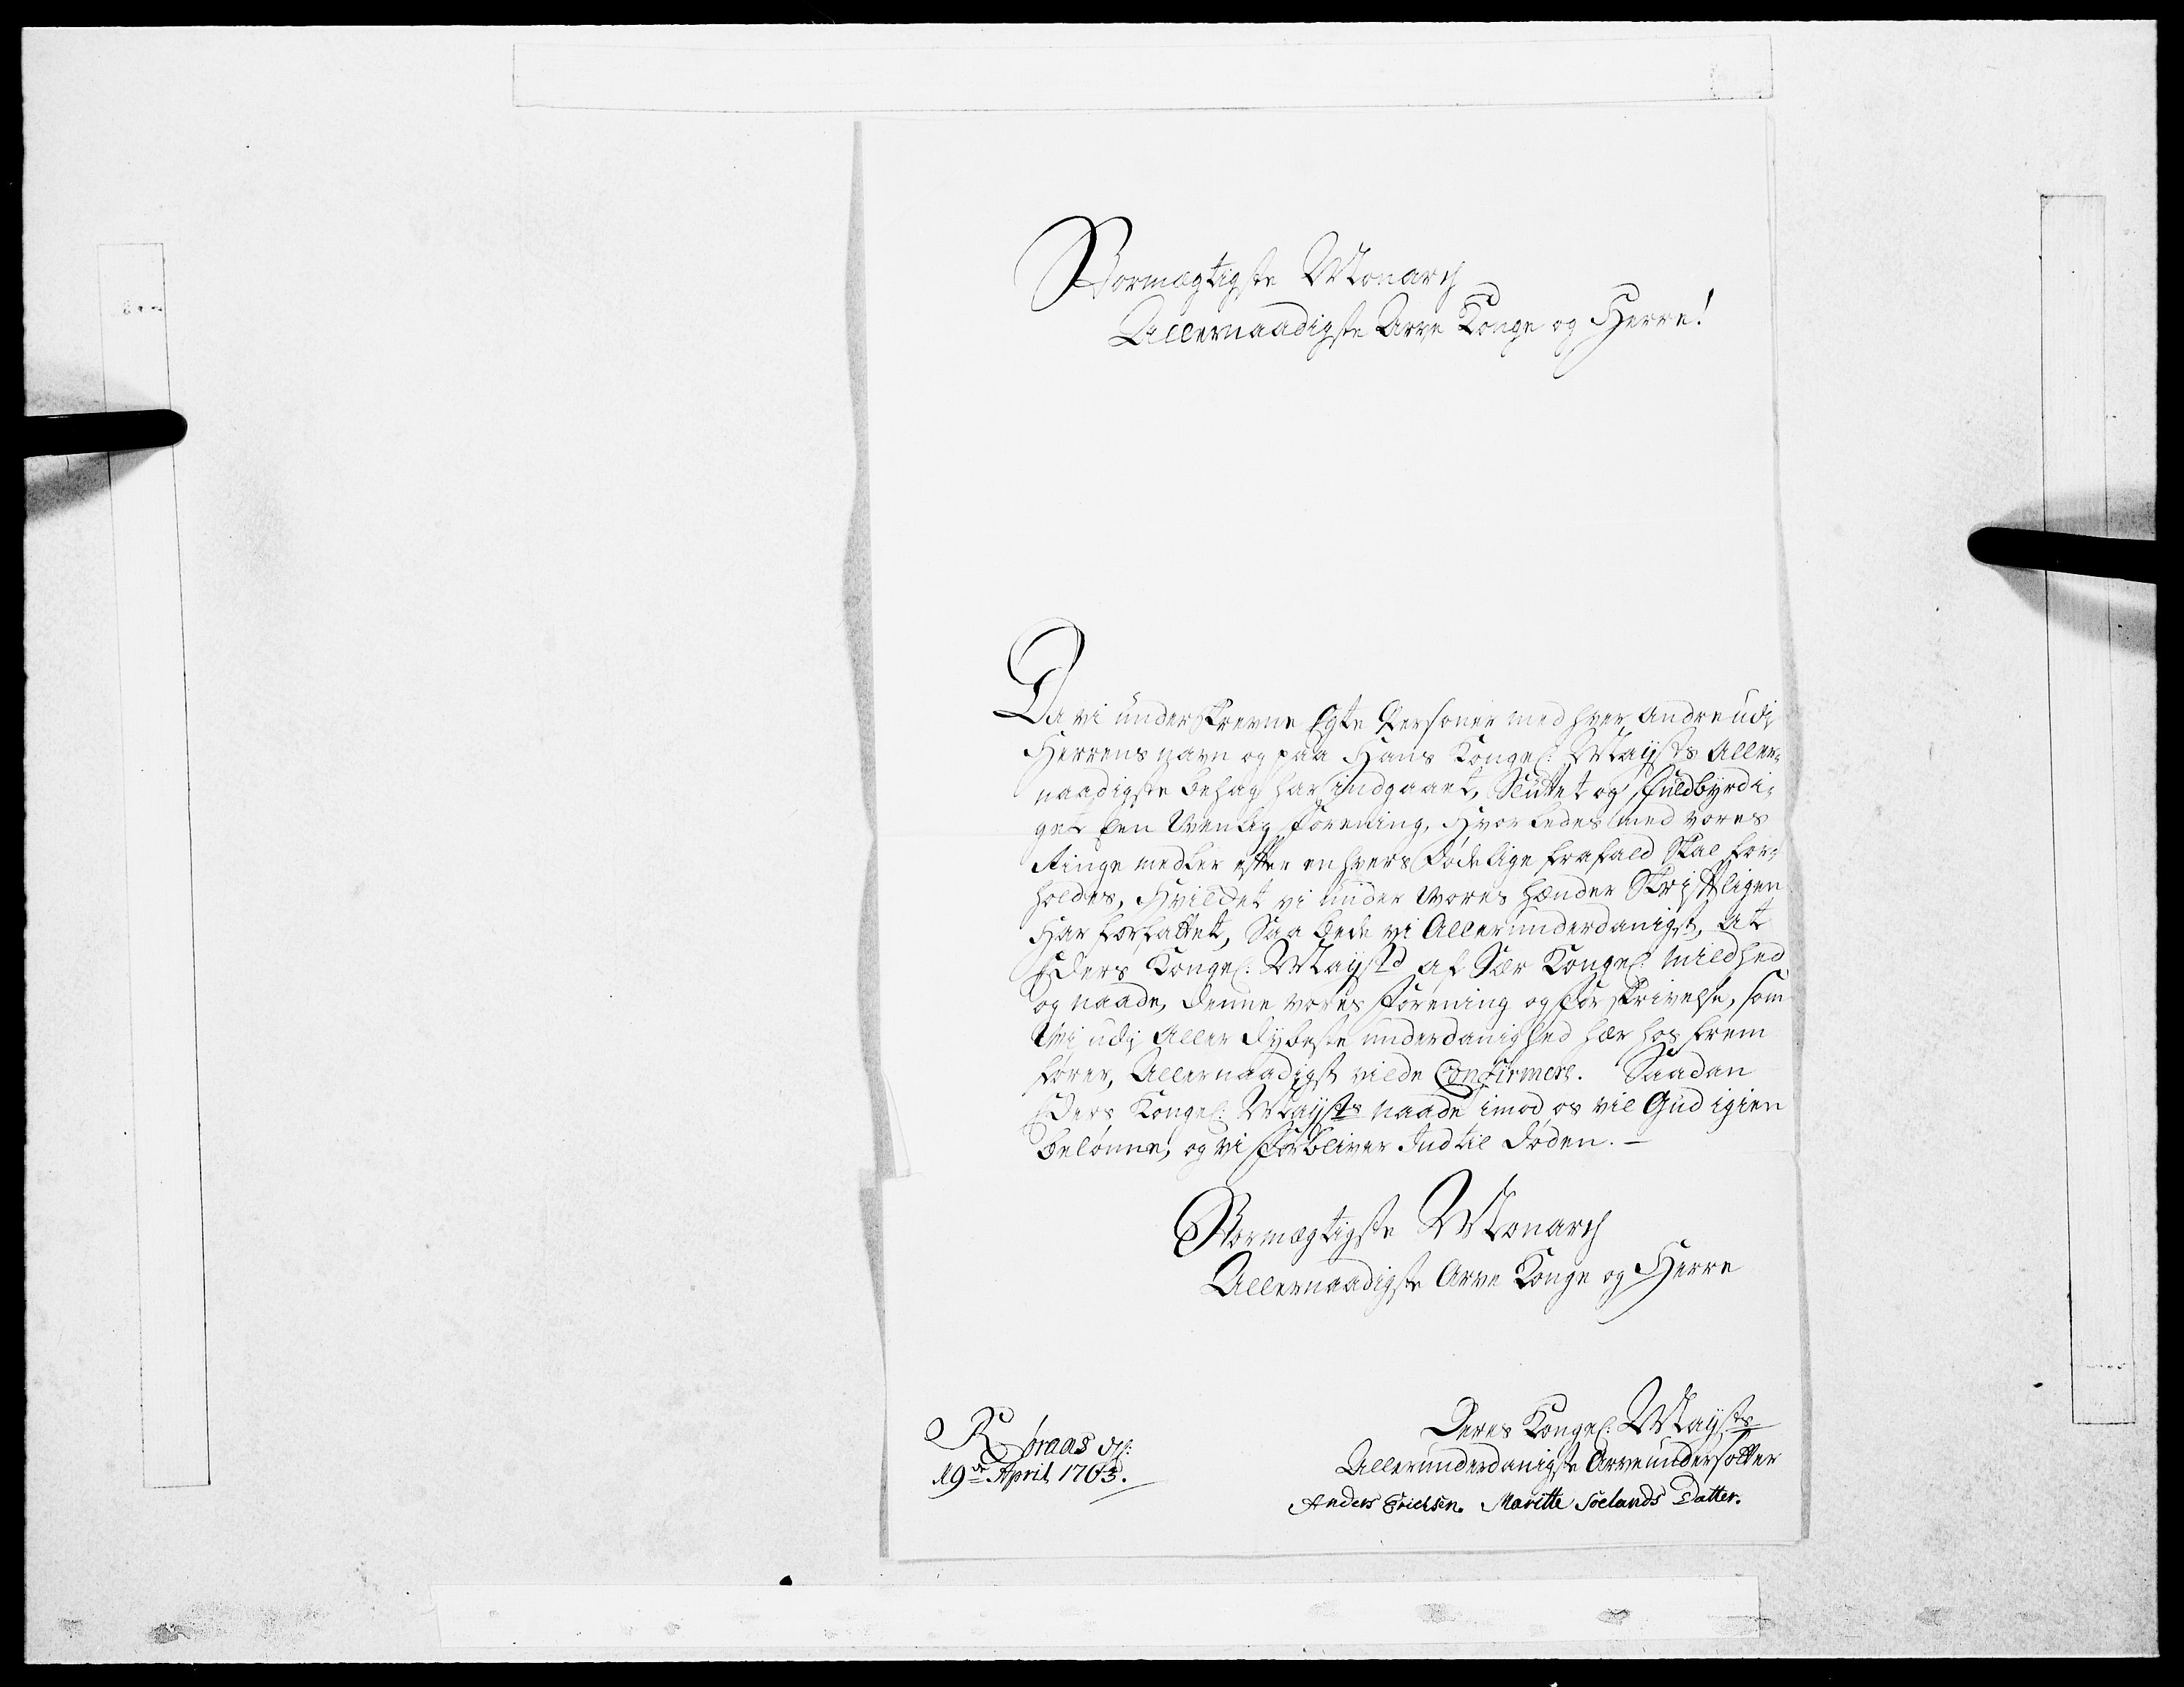 Stormægtigste Monarch
Allernaadigste Arve Konge og Herre!
Da vi underskrevne Egte Personer med hver andre udj
Herrens navn og paa Hans Kongel: Mayts Aller-
naadigste behag har indgaaet, Sluttet og fuldbyrdi-
get Een Venlig forening, Hvorledes med vores
Ringe medler efter en hvers Dødelige frafald skal for-
holdes, Hvilcket vi under Vores hænder Skriftligen
Har forfattet, Saa bede vi Allerunderdanigst, at
Eders Kongel: Mayst af Sær Kongel: mildhed
og naade, denne vores forening og forskrivelse, som
Vi udj Aller dybeste underdanighed her hos frem
fører, Allernaadigst vilde Confirmere. Saadan
Eders Kongel: Maysts naade imod os vil Gud igien
belønne, og vi forbliver Indtil døden. —
Stormægtigste Monarch
Allernaadigste Arve Konge og Herre
Røraas d:
19de April 1763.
Deres Kongel: Maysts
Allerunderdanigste Arveundersotter
Anders Erichsen. Maritte Soelands Datter.